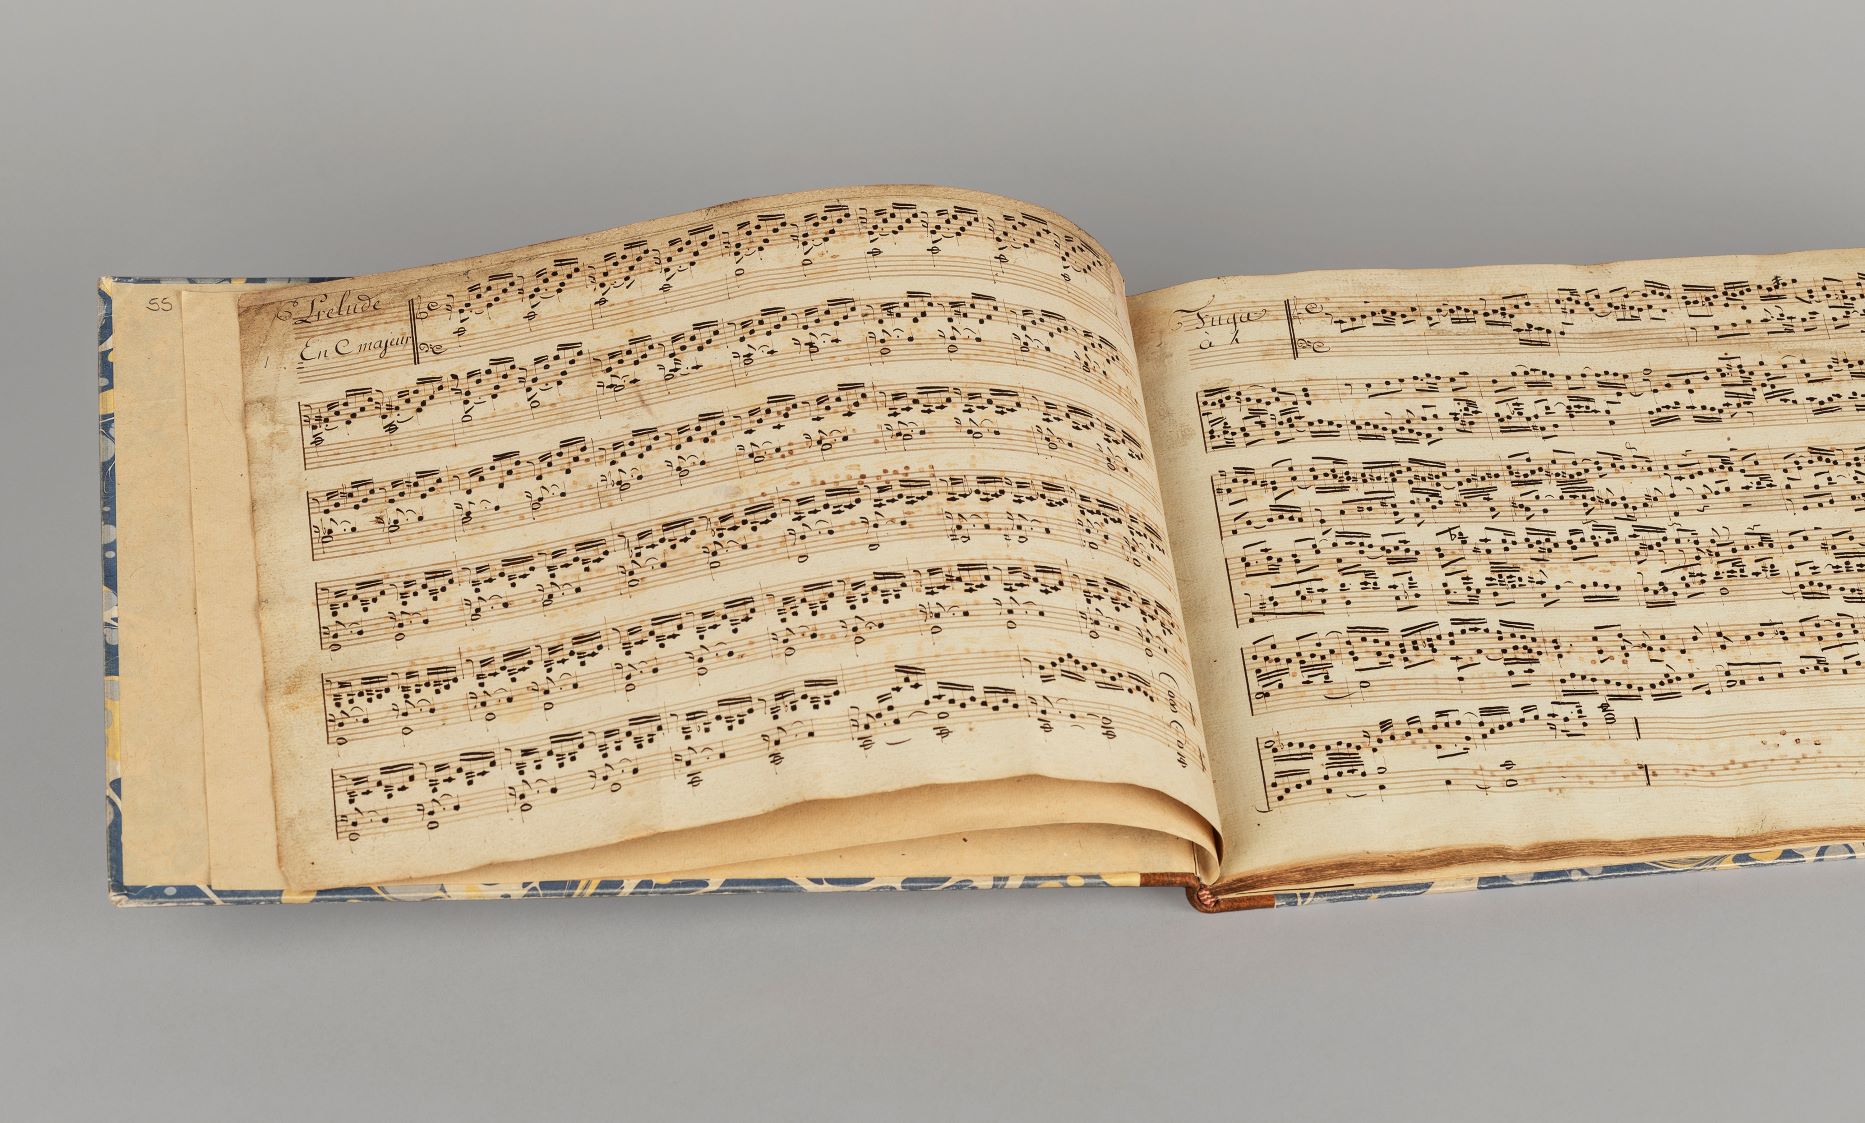 55
Prelude
En C majeur
1.
Fuga
a 4